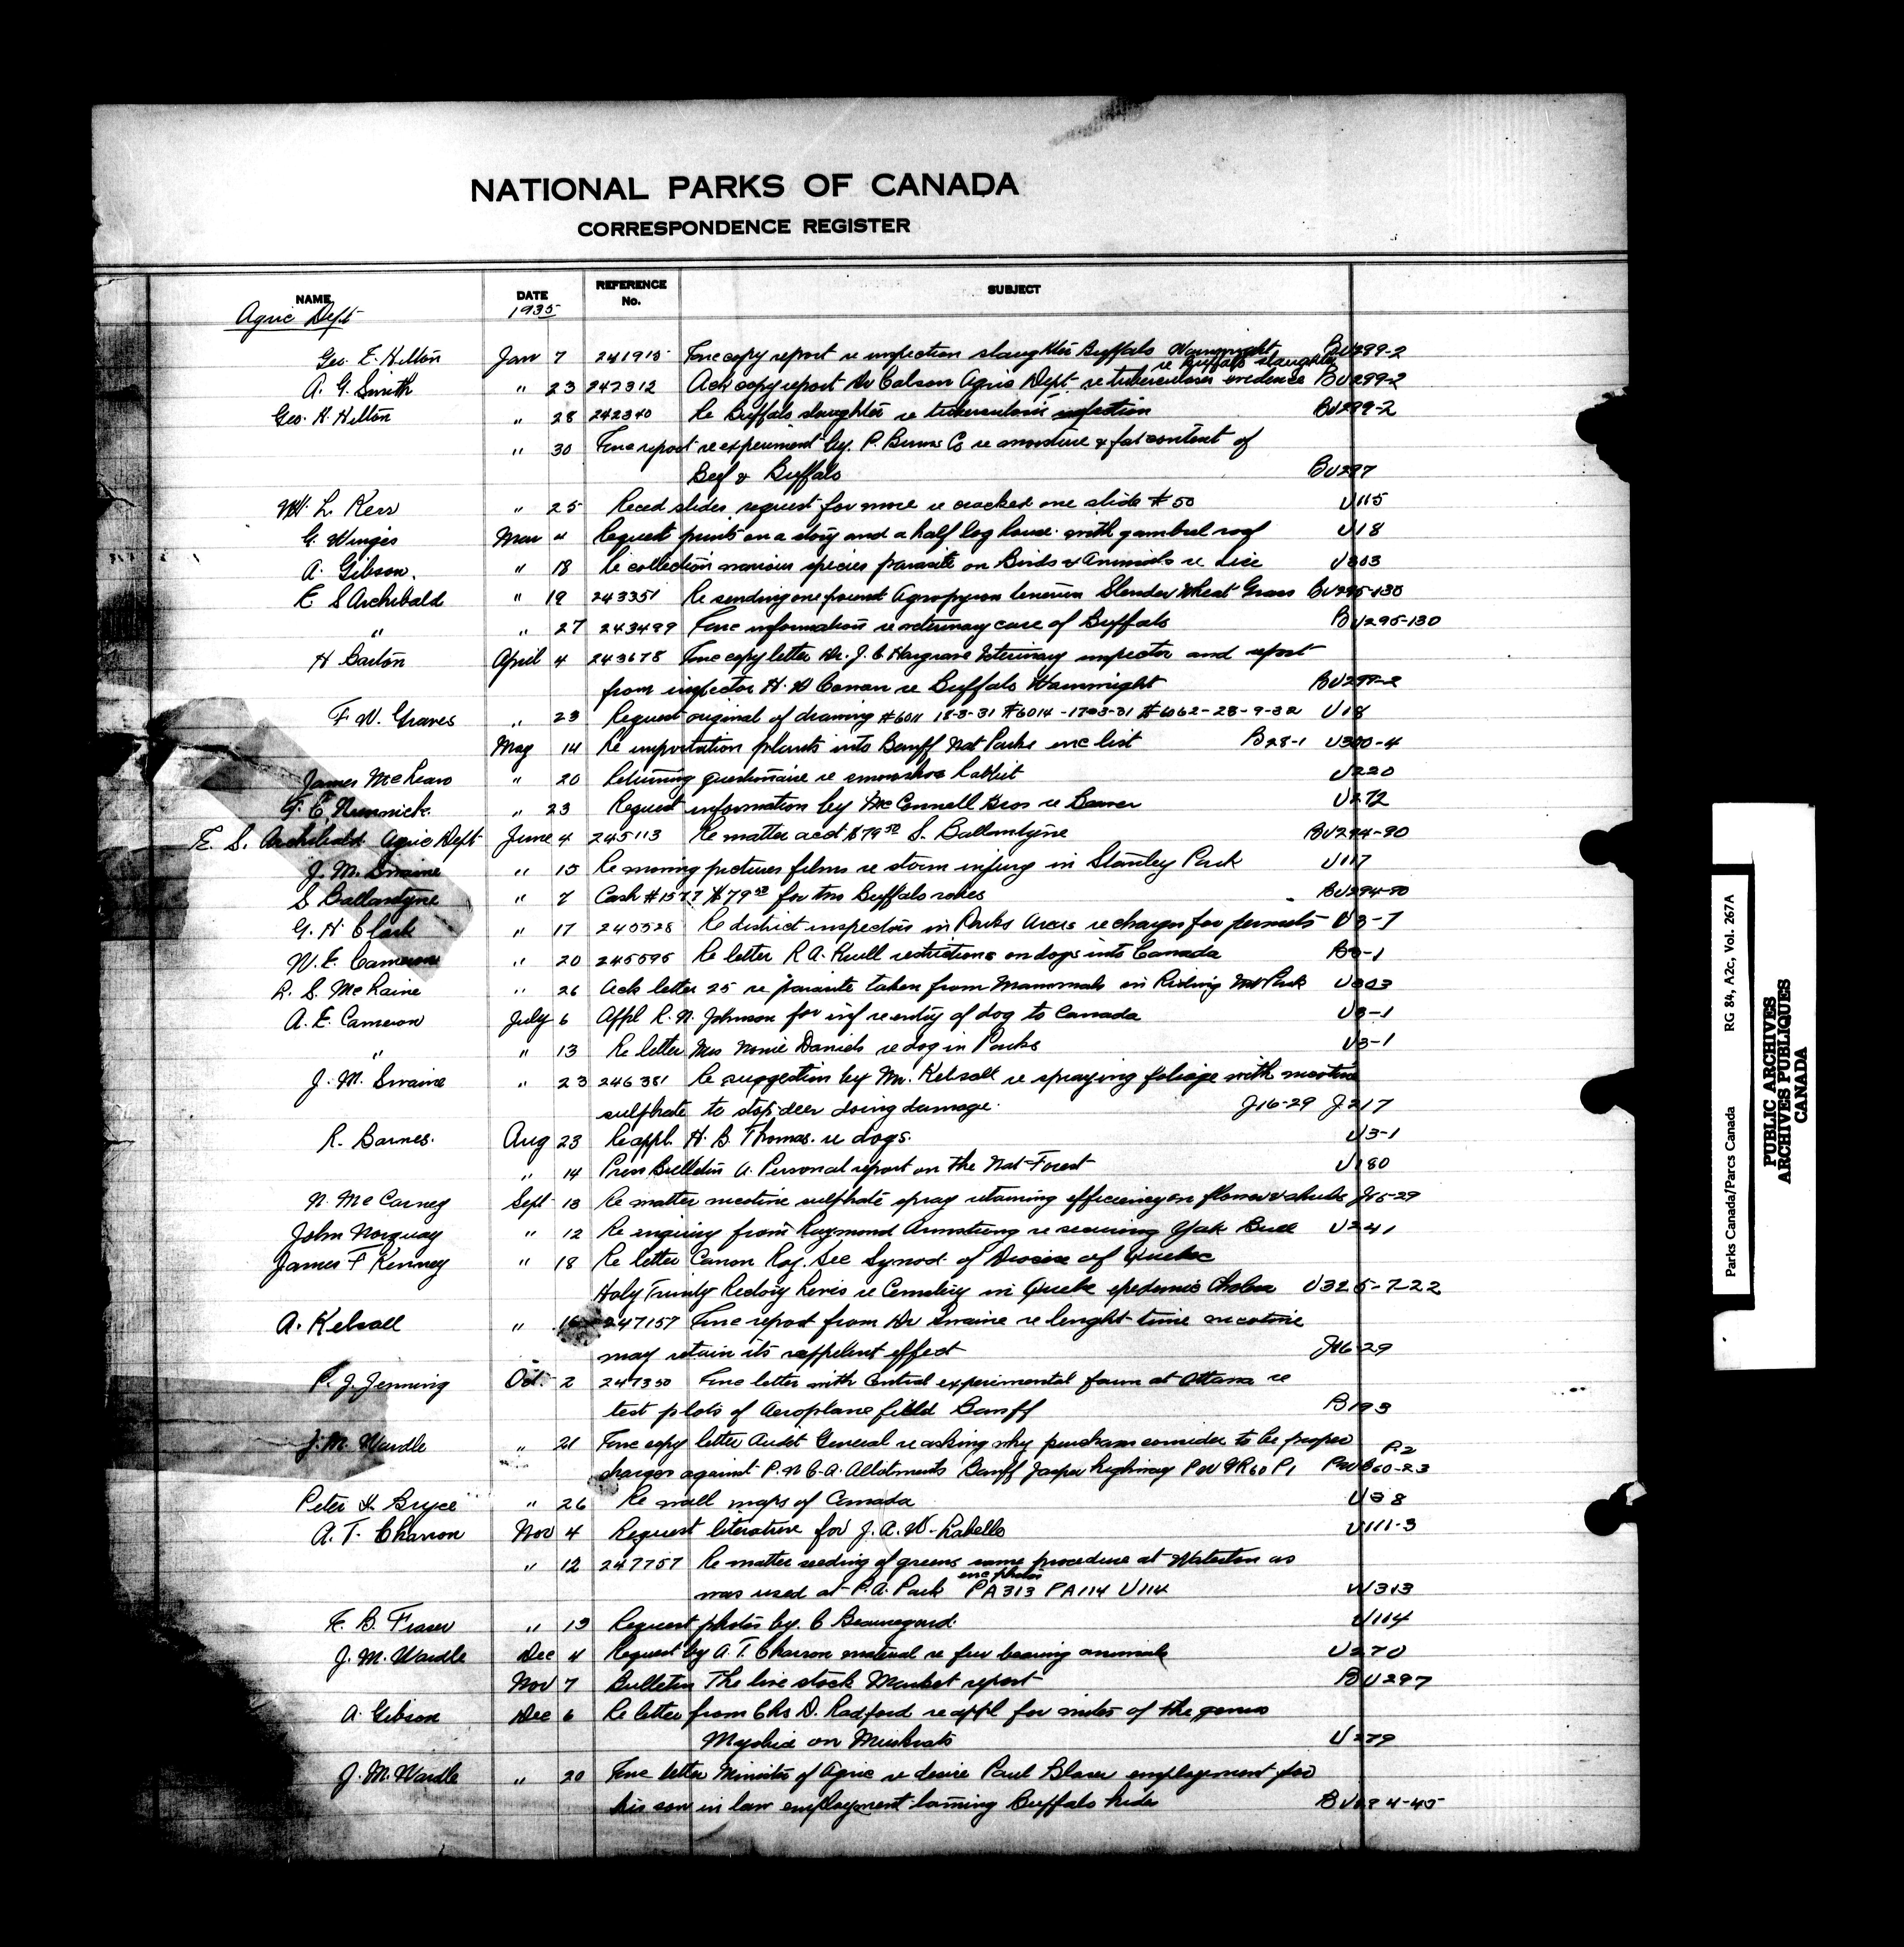 NATIONAL PARKS OF CANADA
CORRESPONDENCE REGISTER
NAME DATE REFERENCE No. SUBJECT
Agric Dept 1935
Geo. E. Hilton Jan 7 241915 Enc copy report re inspection slaughter Buffalo Wainwright BU299-2
re Buffalo slaughter
A. G. Smith " 23 242312 Ack copy report Dr Colson Agric Dept re tuberculosis evidence BU299-2
Geo. H. Hilton " 28 242340 Re Buffalo slaughter re tuberculosis infection BU299-2
" 30 Enc report re experiment by P. Burns Co re moisture & fat content of
Beef & Buffalo BU297
W. L. Kerr " 25 Reced slides request for more re cracked one slide #50 U115
G. Winges Mar 4 Request prints on a story and a half log house with gambrel roof U18
A. Gibson. " 18 Re collection various species parasite on Birds & Animals re lice U303
E S Archibald " 19 243351 Re sending one pound Agropyron tenerum Slender Wheat Grass BU295-130
" " 27 243499 Enc information re veterinary care of Buffalo BU295-130
H Barton April 4 243678 Enc copy letter Dr. J. C Hargrave Veterinary inspector and report
from inspector H. D Conan re Buffalo Wainwright BU299-2
F W. Graves " 23 Request original of drawing #6011 18-3-31 #6014-17-3-31 #6062-28-9-32 U18
May 14 Re importation plants into Banff Nat Parks enc list B28-1 U300-4
James McLean " 20 Returning questionaire re snowshoe Rabbit U220
" 23 Request information by McConnell Bros re Beaver U272
E. S. Archibald Agric Dept June 4 245113 Re matter acct $79.50 S. Ballantyne BU294-90
J. M. Swaine " 15 Re moving pictures films re storm injury in Stanley Park U117
S Ballantyne " 7 Cash #1577 $79.50 for two Buffalo robes BU294-90
G. H Clark " 17 245528 Re district inspectors in Parks Areas re charges for permits U3-7
W. E. Cameron " 20 245595 Re letter R A. restrictions on dogs into Canada B3-1
L. S. McLaine " 26 Ack letter 25 re parasite taken from Mammals in Riding Mt Park U303
A. E. Cameron July 6 Appl R. N. Johnson for inf re entry of dog to Canada U3-1
" " 13 Re letter Mrs Nonie Daniels re dog in Parks U3-1
J. M. Swaine " 23 246381 Re suggestion by Mr. Kelsall re spraying foliage with nicotine
sulphate to stop deer doing damage. J16-29 J217
R. Barnes. Aug 23 Re appl. H. B. Thomas. re dogs. U3-1
" 14 Press Bulletin A. Personal report on the Nat Forest U180
N. McCarney Sept 13 Re matter nicotine sulphate spray retaining efficiency on flowers & shrubs J16-29
John Norquay " 12 Re enquiry from Raymond Armstrong re securing Yak Bull U241
James F Kenney " 18 Re letter Canon Roy. Sec Synod of Diocese of Quebec
Holy Trinity Rectory Levis re Cemetery in Quebec epidemic Cholera U325-7-22
A. Kelsall " 16 247157 Enc report from Dr Swaine re lenght time nicotine
may retain its reppelent effect J16-29
P. J. Jenning Oct. 2 247350 Enc letter with Central experimental farm at Ottawa re
test plots of Aeroplane field Banff B193
J. M. Wardle " 21 Enc copy letter Audit General re asking why purchases consider to be proper
charges against P.W.C.A. Allotments Banff Jasper highway P2
Peter H. Bryce " 26 Re wall maps of Canada U38
A. T. Charron Nov 4 Request literature for J. A. W. Labelle U111-3
" 12 247757 Re matter seeding of greens same procedure at Waterton as
enc photos
was used at P.A. Park PA313 PA114 U114 W313
E. B. Fraser " 13 Request photos by. C Beauregard. U114
J. M. Wardle Dec 4 Request by A. T. Charron material re fur bearing animals U270
Nov 7 Bulletin The live stock Market report BU297
A. Gibson Dec 6 Re letter from Chs D. Radford re appl for mites of the genus
on Muskrats U279
J. M. Wardle " 20 Enc letter Minister of Agric re desire Paul Blaser employment for
his son in law employment tanning Buffalo hides BU294-45
Parks Canada/Parcs Canada RG 84, A2c, Vol. 267A
PUBLIC ARCHIVES
ARCHIVES PUBLIQUES
CANADA